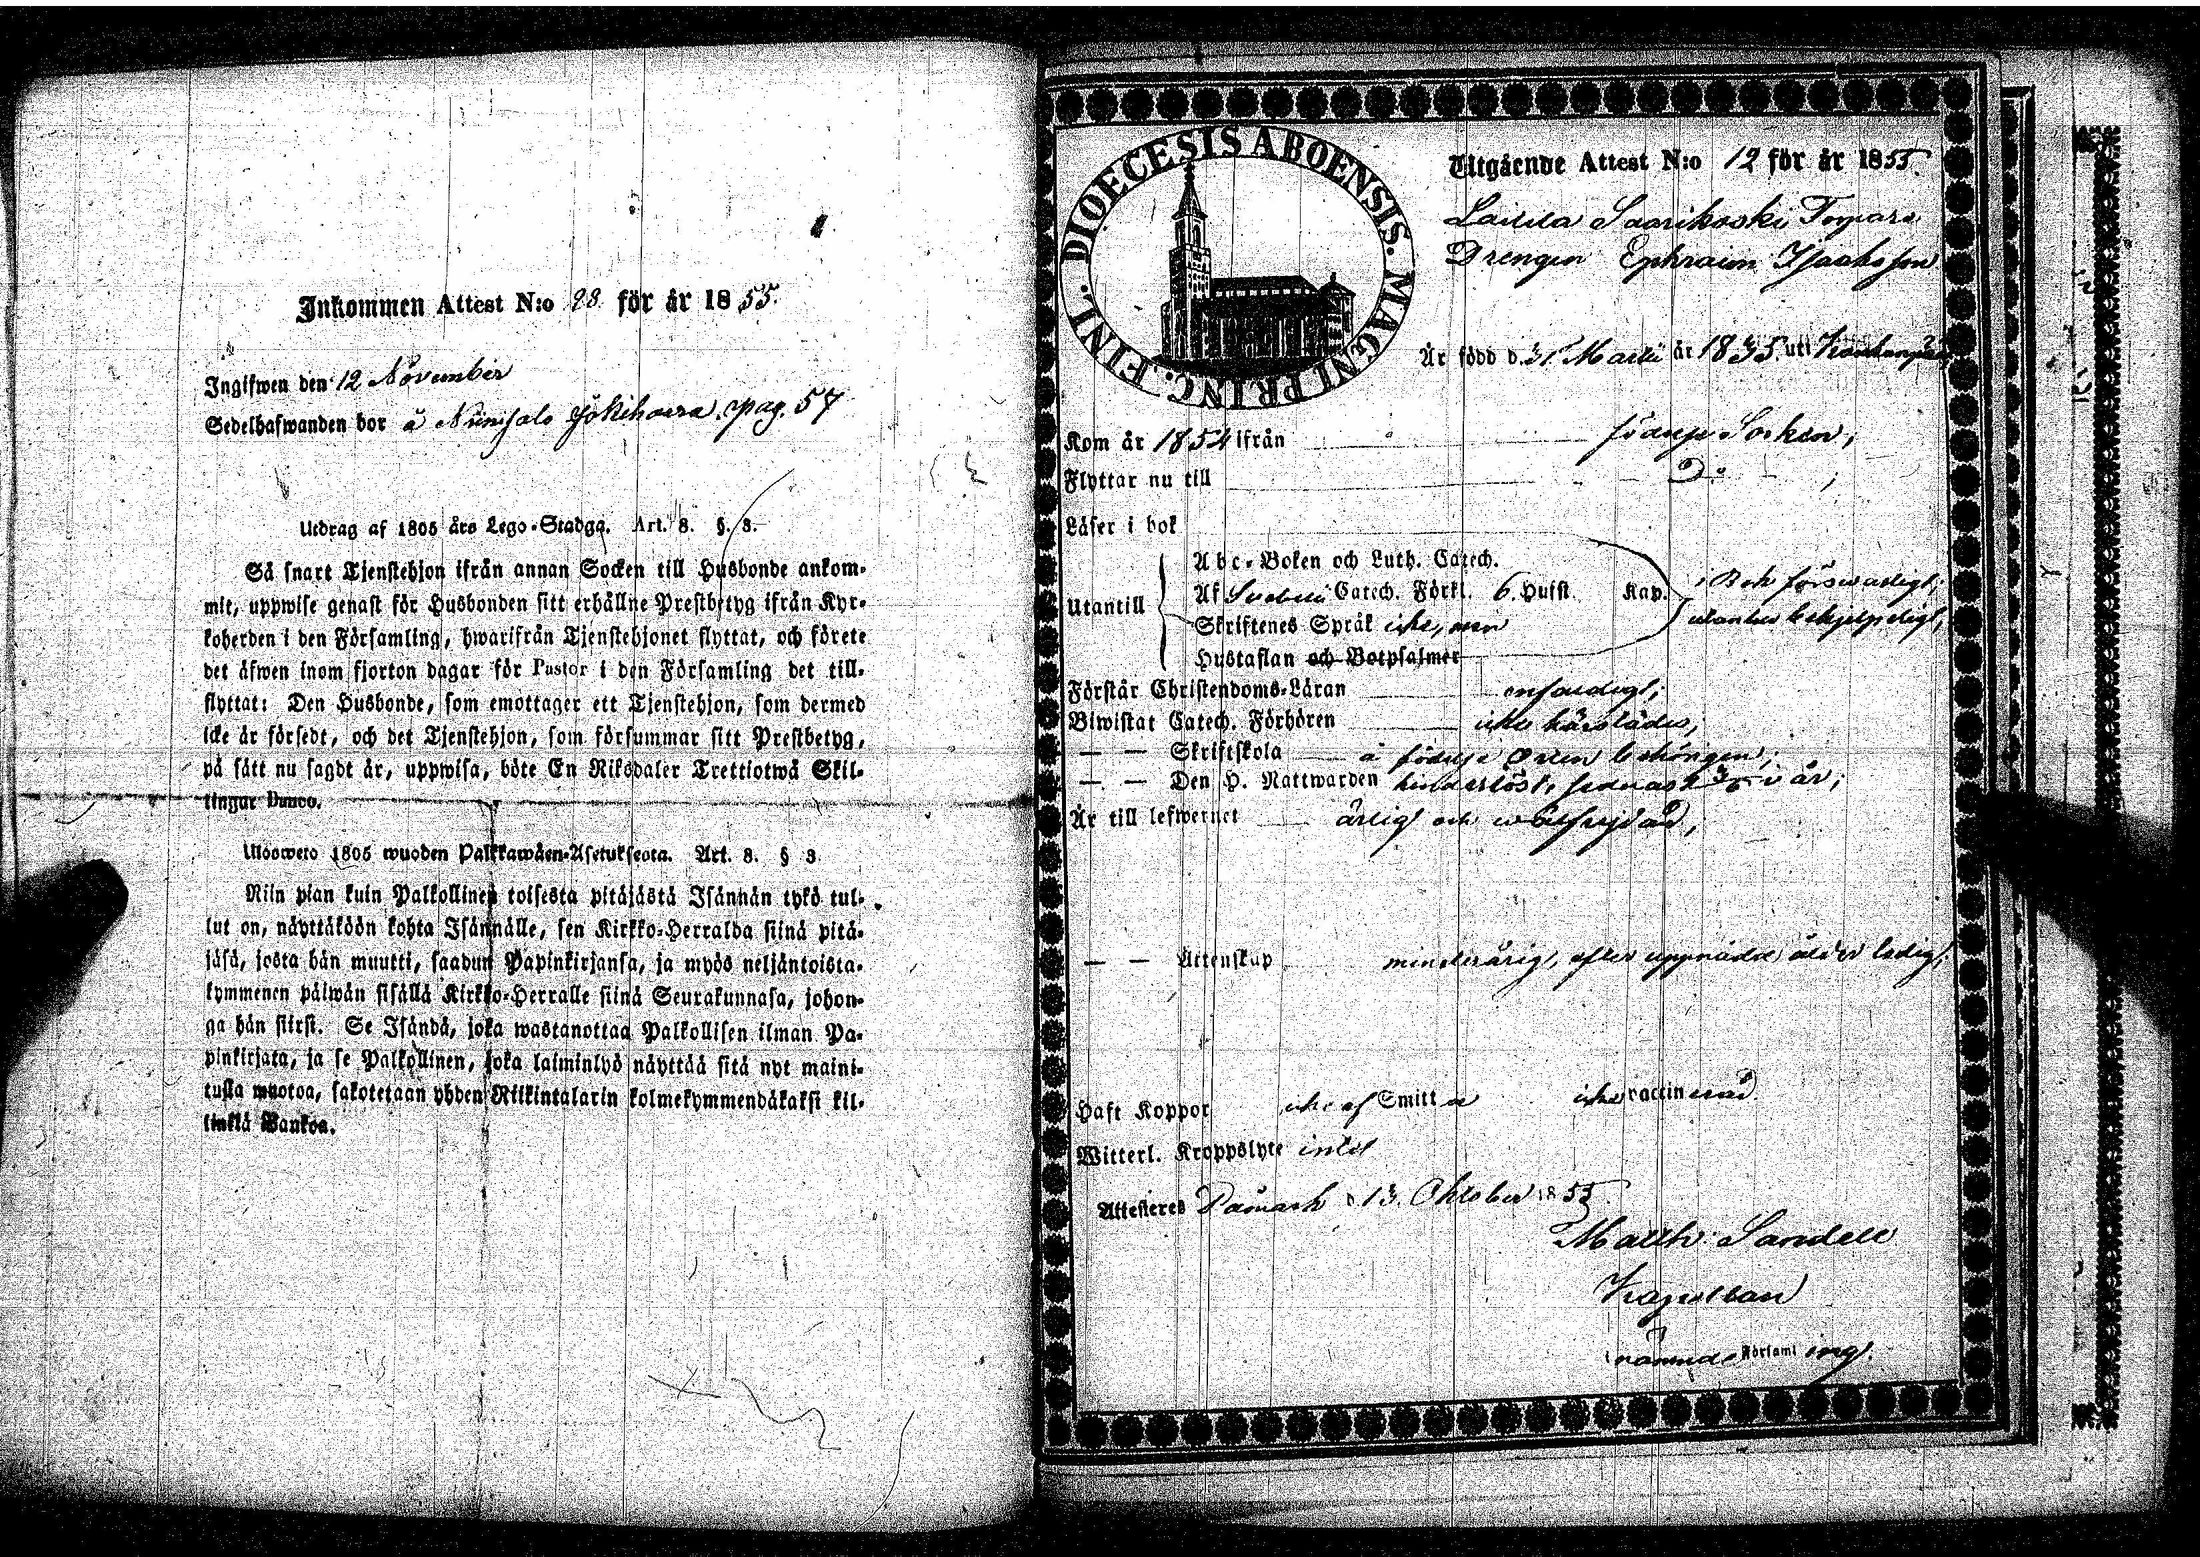 Inkommen Attest N:o 28. för år 1855.
Ingifwen den 12 November
Sedelhafwanden bor å Niinisalo Jokihaara pag. 57
Utdrag af 1805 års Lego-Stadga. Art. 8. §. 3.
Så snart Tjenstehjon ifrån annan Socken till Husbonde ankom-
mit, uppwise genast för Husbonden sitt erhållne Prestbetyg ifrån Kyr-
koherden i den Församling, hwarifrån Tjenstehjonet flyttat, och förete
det äfwen inom fjorton dagar för Pastor i den Församling det till-
flyttat: Den Husbonde, som emottager ett Tjenstehjon, som dermed
icke är försedt, och det Tjenstehjon, som försummar sitt Prestbetyg,
på sätt nu sagdt är, uppwisa, böte En Riksdaler Trettiotwå Skil-
lingar Banco.
Ulosweto 1805 wuoden Palkkawäen-Asetuksesta. Art. 8. § 3
Niin pian kuin Palkollinen toisesta pitäjästä Isännän tykö tul-
lut on, näyttäköön kohta Isännälle, sen Kirkko-Herralda siinä pitä-
jäsä, josta hän muutti, saadun Papinkirjansa, ja myös neljäntoista-
kymmenen päiwän sisällä Kirkko-Herralle siinä Seurakunnasa, johon-
ga hän siirsi. Se Isändä, joka wastanottaa Palkollisen ilman Pa-
pinkirjata, ja se Palkollinen, joka laiminlyö näyttää sitä nyt maini-
tulla muotoa, sakotetaan yhden Riikintalarin kolmekymmendäkaksi kil-
linkiä Bankoa.
DIOECESIS ABOENSIS. MAGNI PRINC. FINL.
Utgående Attest N:o 12 för år 1855.
Saarikoski Torpare
Drengen Ephraim Isaaksson
Är född d. 31 Martii år 1835 uti Kankanpää
Kom år 1854 ifrån födelse Socken;
Flyttar nu till D:o
Läser i bok
Abc-Boken och Luth. Catech.
Utantill Af Svebelii Catech. Förkl. 6. Hufst. Kap. i Bok förswarligt;
Skriftenes Språk icke, men utantill behjelpeligt,
Hustaflan och Botpsalmer
Förstår Christendoms-Läran enfaldigt;
Biwistat Catech. Förhören icke härstädes,
— — Skriftskola å födelse orten behörigen;
— — Den H. Nattwarden hinderlöst, i år;
Är till lefwernet ärlig och wälfrejdad,
— — Ächtenskap minderårig, efter uppnådd ålder ledig;
Haft Koppor icke af Smitta icke vaccinerad.
Witterl. Kroppslyte intet
Attesteres Påmark d. 13. Oktober 1855.
Matth Sandell
Kapellan
nämnde Församling.